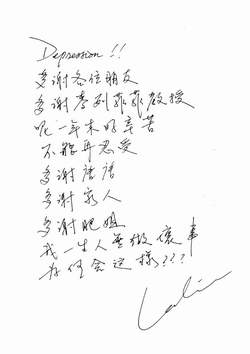 Depression !!
多謝各位朋友
多謝麥列菲菲教授
呢一年來好辛苦
不能再忍受
多謝唐唐
多謝家人
多謝肥姐
我一生人無做壞事
為何會這樣???
Leslie